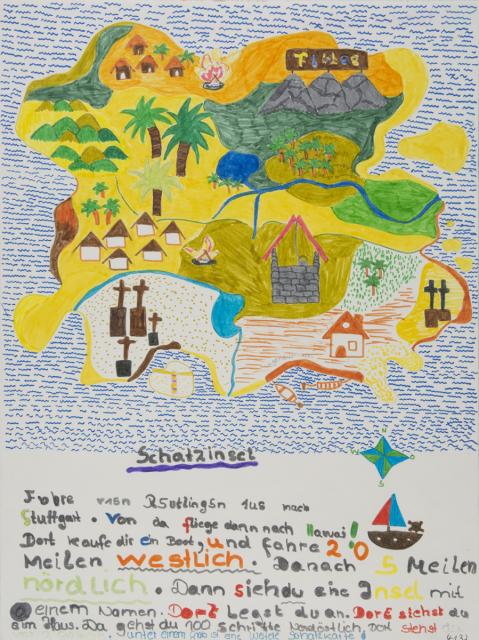 Schatzinsel
Fahre von Reutlingen aus nach
Stuttgart. Von da fliege dann nach Hawai!
Dort kaufe dir ein Boot, und fahre 20
Meilen westlich. Danach 5 Meilen
nördlich. Dann siehdu eine Insel mit
einem Namen. Dort legst du an. Dort siehst du
ein Haus. Da gehst du 100 schritte Nordöstlich, Dort stehst
unter einem